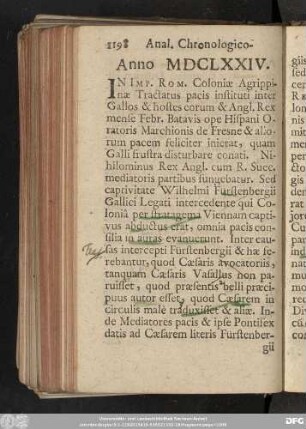 1198 Anal. Chronologico-
Anno MDCLXXIV.
IN IMP. ROM. Coloniæ Agrippi-
næ Tractatus pacis instituti inter
Gallos & hostes eorum & Angl. Rex
mense Febr. Batavis ope Hispani O-
ratoris Marchionis de Fresne & alio-
rum pacem feliciter inierat, quam
Galli frustra disturbare conati. Ni-
hilominus Rex Angl. cum R. Suec.
mediatoris partibus fungebatur. Sed
captivitate Wilhelmi Furstenbergii
Gallici Legati intercedente qui Co-
loniâ per stratagema Viennam capti-
vus abductus erat, omnia pacis con-
silia in auras evanuerunt. Inter cau-
sas intercepti Fürstenbergii & hæ fe-
rebantur, quod Cæsaris avocatoriis,
tanquam Cæsaris Vasallus non pa-
ruisset, quod præsentis belli præci-
puus autor esset, quod Cæsarem in
circulis male traduxisset & aliæ. In-
de Mediatores pacis & ipse Pontifex
datis ad Cæsarem literis Fürstenber-
gii